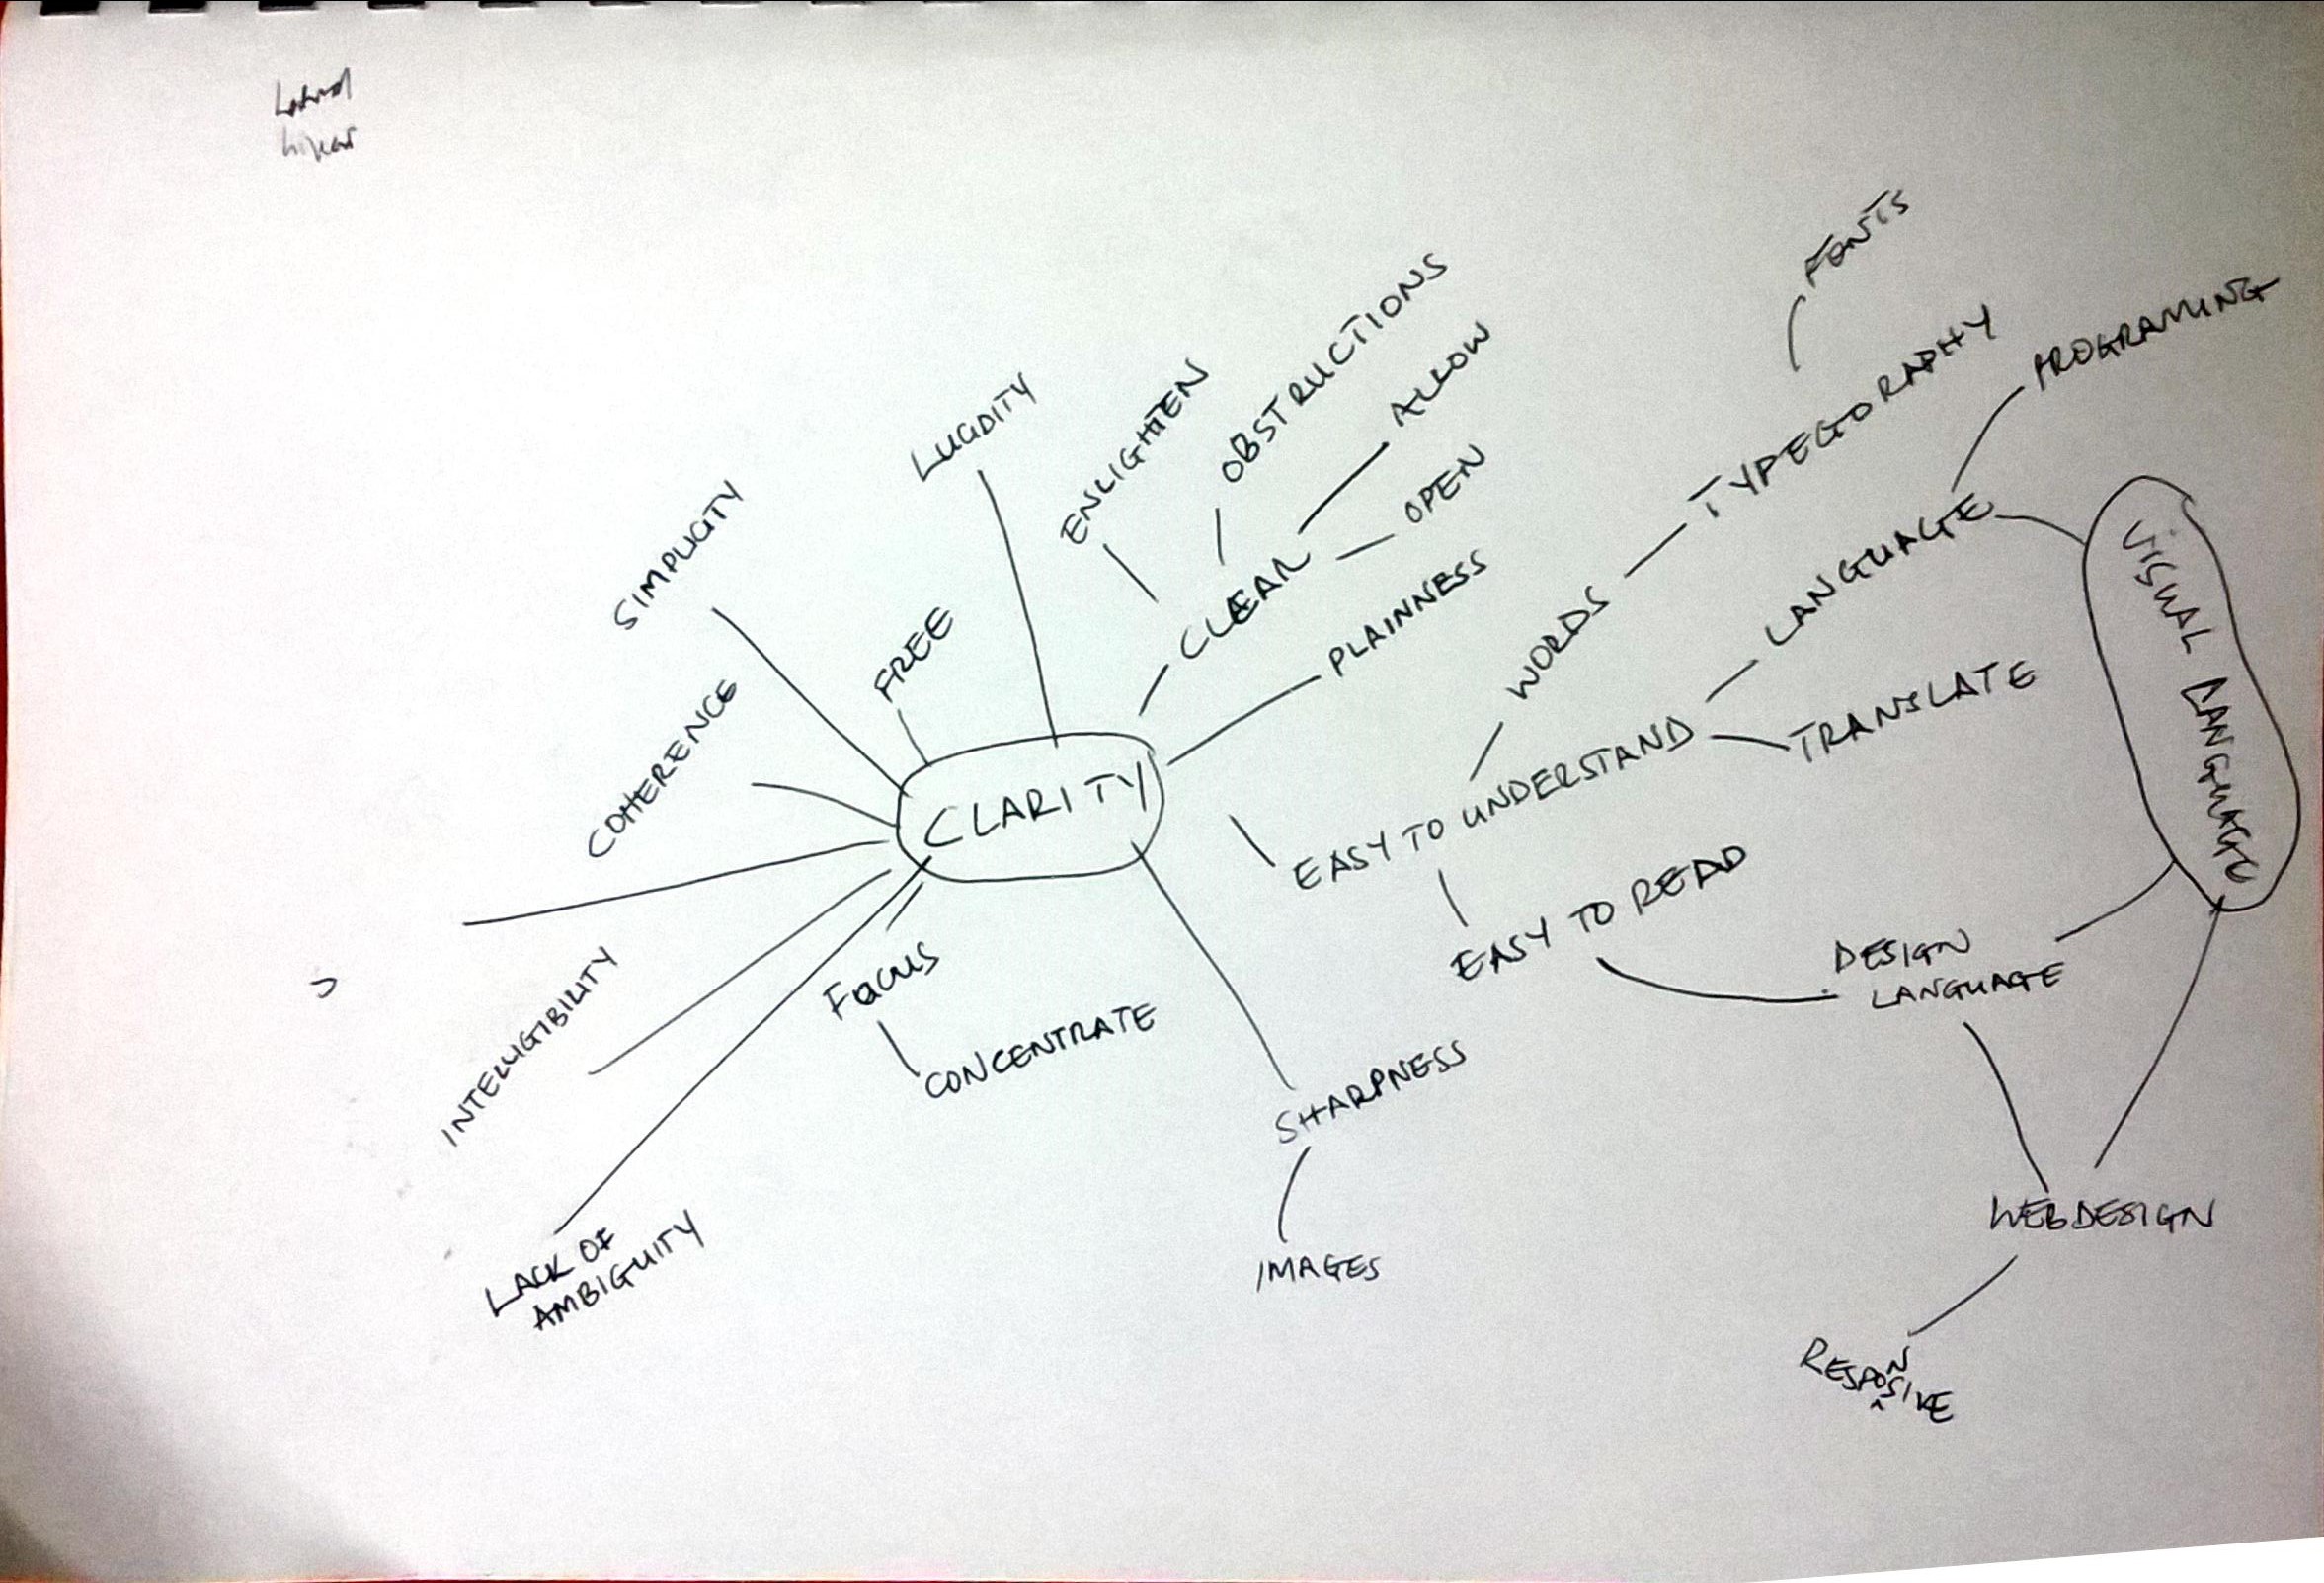 FONTS
OBSTRUCTIONS
PROGRAMING
TYPEGORAPHY
ALLOW
LUCIDITY
ENLIGHTEN
OPEN
SIMPLICITY
LANGUAGE
CLEAR
FREE
PLAINNESS
WORDS
VISUAL LANGUAGE
TRANSLATE
COHERENCE
CLARITY
EASY TO UNDERSTAND
EASY TO READ
DESIGN
LANGUAGE
FOCUS
INTELLIGIBILITY
CONCENTRATE
SHARPNESS
WEBDESIGN
IMAGES
LACK OF
AMBIGUITY
RESPONSIVE